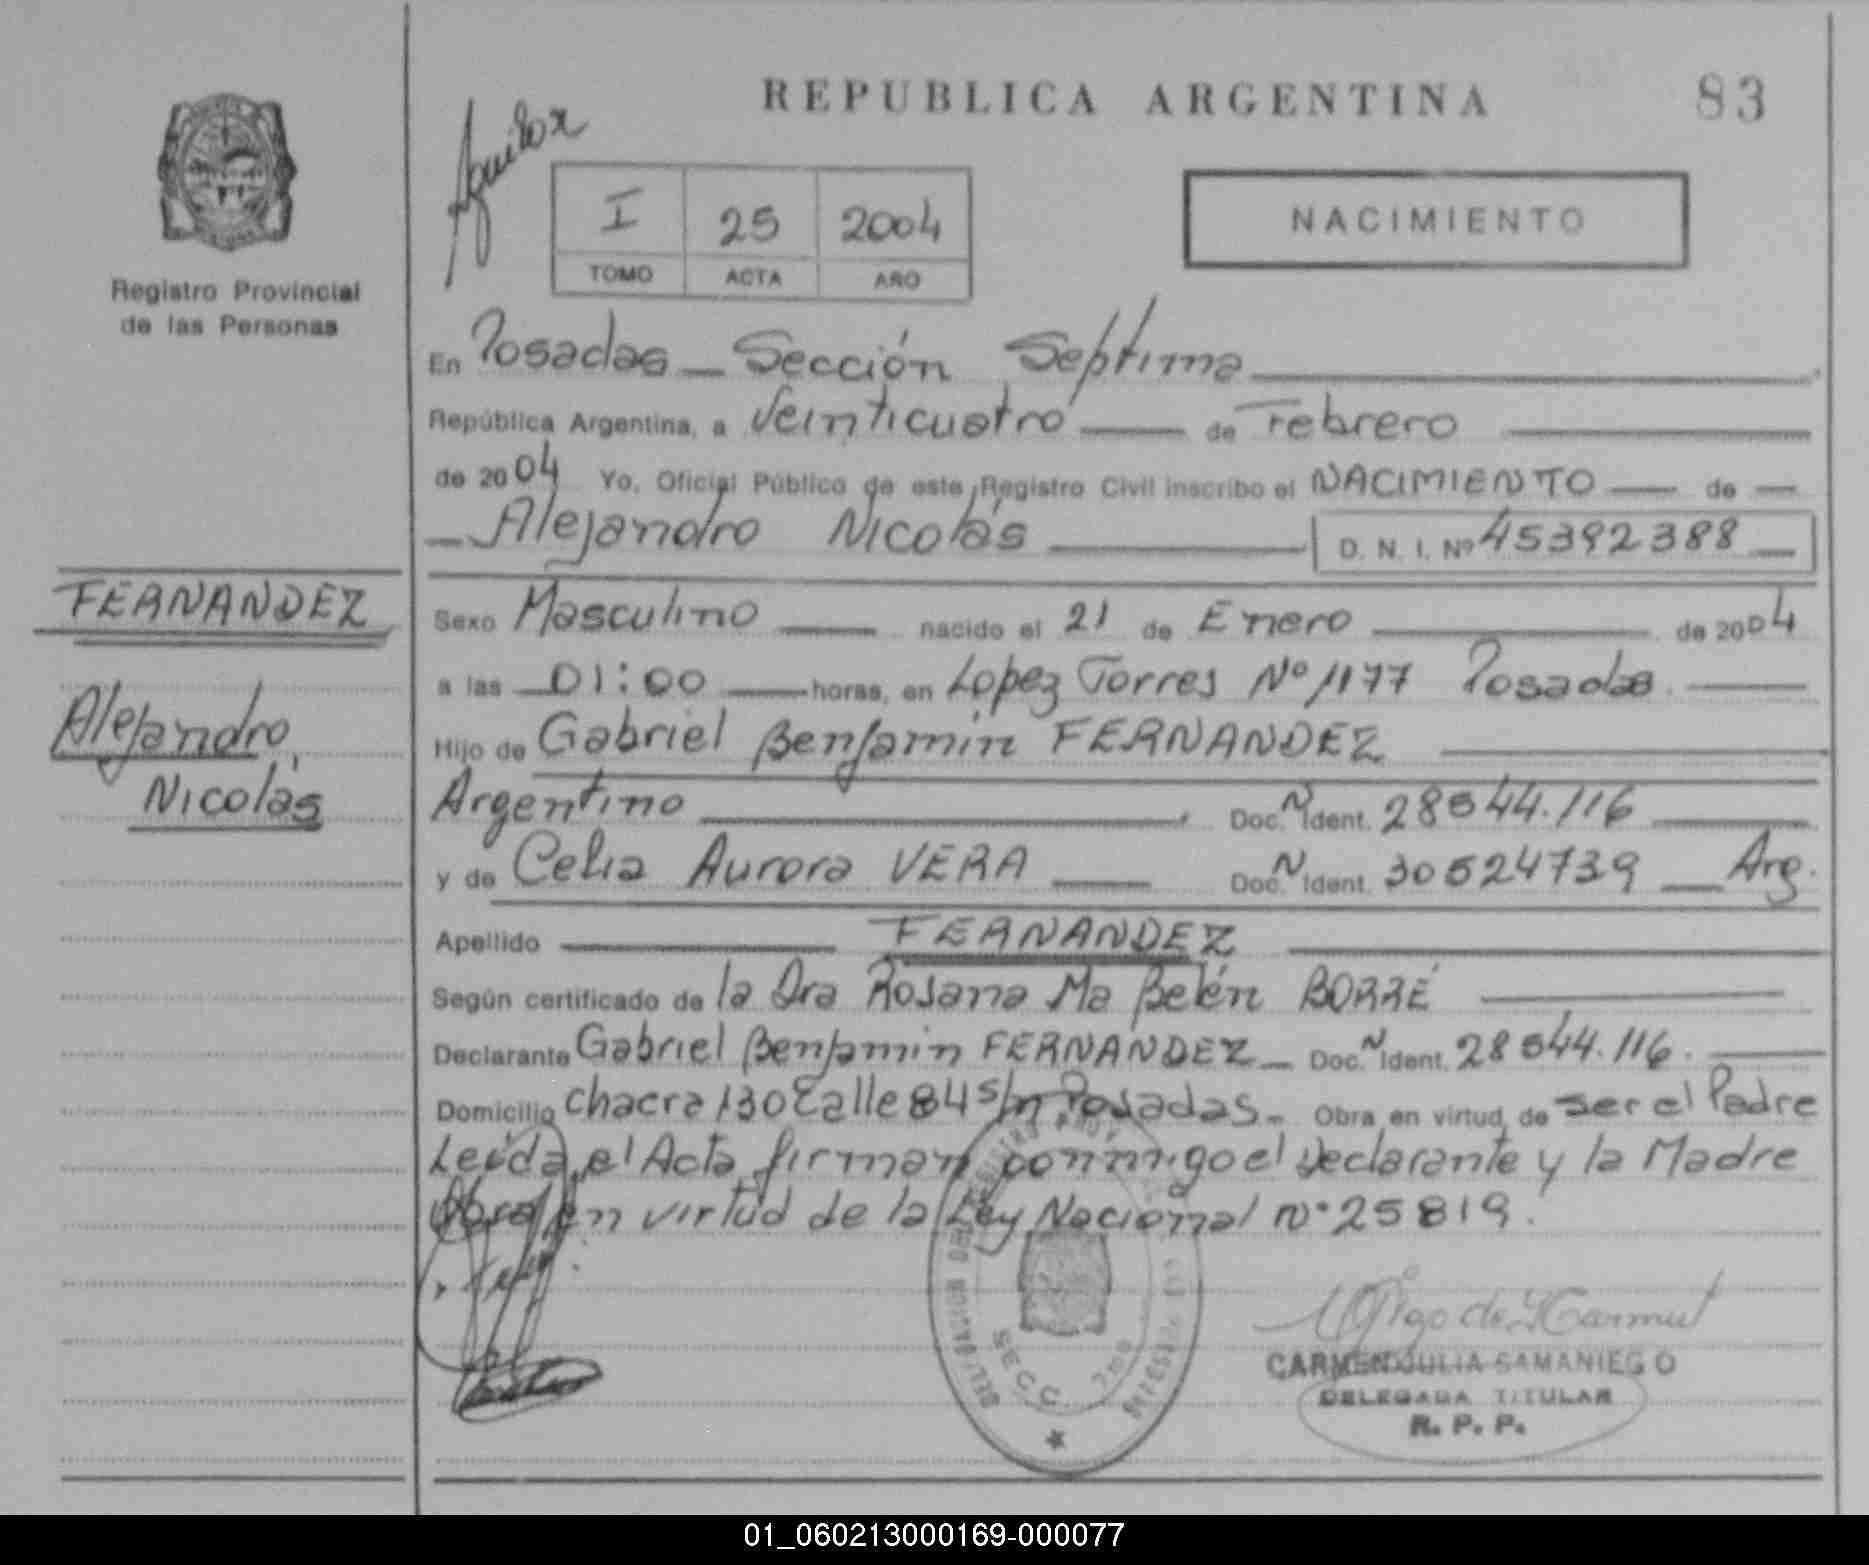 REPUBLICA ARGENTINA 83
Aguilar
I 25 2004
TOMO ACTA AÑO
NACIMIENTO
Registro Provincial
de las Personas
En Posadas - Sección Septima
República Argentina, a Veinticuatro de Febrero
de 2004 Yo, Oficial Público de este Registro Civil inscribo el NACIMIENTO de
Alejandro Nicolás D. N. I. Nº 45392388
FERNANDEZ
Alejandro
Nicolás
Sexo Masculino nacido el 21 de Enero de 2004
a las 01:00 horas, en Lopez Torres Nº 1177 Posadas.
Hijo de Gabriel Benjamin FERNANDEZ
Argentino Doc. N Ident. 28544.116
y de Celia Aurora VERA Doc. N Ident. 30524739 Arg.
Apellido FERNANDEZ
Según certificado de la Dra Rosana Ma Belén BORRÉ
Declarante Gabriel Benjamin FERNANDEZ Doc. N Ident. 28544.116.
Domicilio chacra 130 Calle 84 s/n Posadas.- Obra en virtud de ser el Padre
Leída el Acta firman conmigo el declarante y la Madre
Obra en virtud de la Ley Nacional nº 25819.
SECC.
CARMEN JULIA SAMANIEGO
DELEGADA TITULAR
R. P. P.
01_060213000169-000077